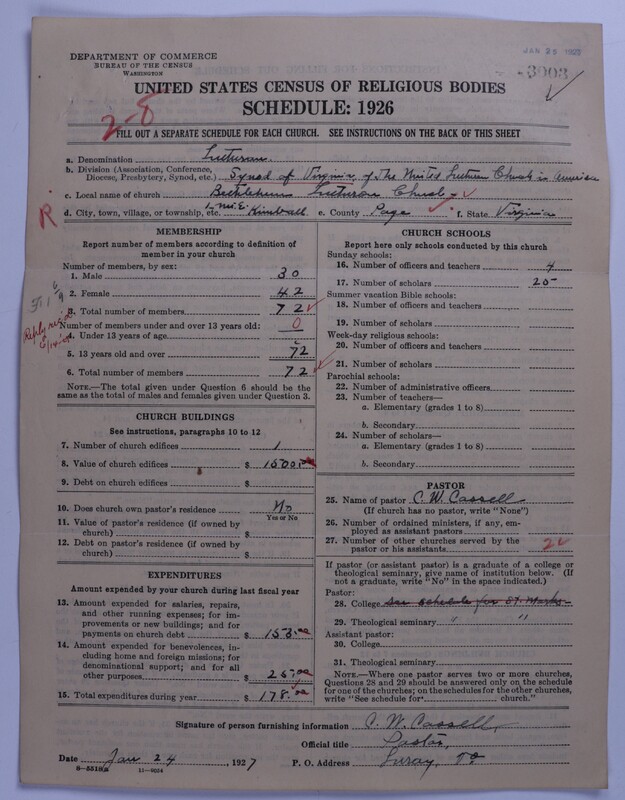 DEPARTMENT OF COMMERCE
BUREAU OF THE CENSUS
WASHINGTON
JAN 26 1927
3003
UNITED STATES CENSUS OF RELIGIOUS BODIES
SCHEDULE: 1926
2-8
FILL OUT A SEPARATE SCHEDULE FOR EACH CHURCH. SEE INSTRUCTIONS ON THE BACK OF THIS SHEET
a. Denomination Lutheran
b. Division (Association, Conference, Diocese, Presbytery, Synod, etc.) Synod of Virginia of The United Lutheran Church in America
c. Local name of church Bethlehem Lutheran Church
R
d. City, town, village, or township, etc. 1 mi. E. Kimball e. County Page f. State Virginia
MEMBERSHIP
Report number of members according to definition of member in your church
Number of members, by sex:
1. Male 30
2. Female 42
3. Total number of members 72
Number of members under and over 13 years old:
4. Under 13 years of age 0
5. 13 years old and over 72
6. Total number of members 72
NOTE.—The total given under Question 6 should be the same as the total of males and females given under Question 3.
CHURCH BUILDINGS
See instructions, paragraphs 10 to 12
7. Number of church edifices 1
8. Value of church edifices $ 1500.00
9. Debt on church edifices $
10. Does church own pastor's residence? No
Yes or No
11. Value of pastor's residence (if owned by church) $
12. Debt on pastor's residence (if owned by church) $
EXPENDITURES
Amount expended by your church during last fiscal year
13. Amount expended for salaries, repairs, and other running expenses; for improvements or new buildings; and for payments on church debt $ 153.00
14. Amount expended for benevolences, including home and foreign missions; for denominational support; and for all other purposes $ 25.00
15. Total expenditures during year $ 178.00
CHURCH SCHOOLS
Report here only schools conducted by this church
Sunday schools:
16. Number of officers and teachers 4
17. Number of scholars 25
Summer vacation Bible schools:
18. Number of officers and teachers
19. Number of scholars
Week-day religious schools:
20. Number of officers and teachers
21. Number of scholars
Parochial schools:
22. Number of administrative officers
23. Number of teachers—
a. Elementary (grades 1 to 8)
b. Secondary
24. Number of scholars—
a. Elementary (grades 1 to 8)
b. Secondary
PASTOR
25. Name of pastor C. W. Cassell
(If church has no pastor, write "None")
26. Number of ordained ministers, if any, employed as assistant pastors
27. Number of other churches served by the pastor or his assistants 2
If pastor (or assistant pastor) is a graduate of a college or theological seminary, give name of institution below. (If not a graduate, write "No" in the space indicated.)
Pastor:
28. College see schedule for St. Marks
29. Theological seminary " "
Assistant pastor:
30. College
31. Theological seminary
NOTE.—Where one pastor serves two or more churches, Questions 28 and 29 should be answered only on the schedule for one of the churches; on the schedules for the other churches, write "See schedule for church."
Signature of person furnishing information C. W. Cassell
Official title Pastor,
Date Jan 24, 1927 P. O. Address Luray, Va
8—5518a 11—9024